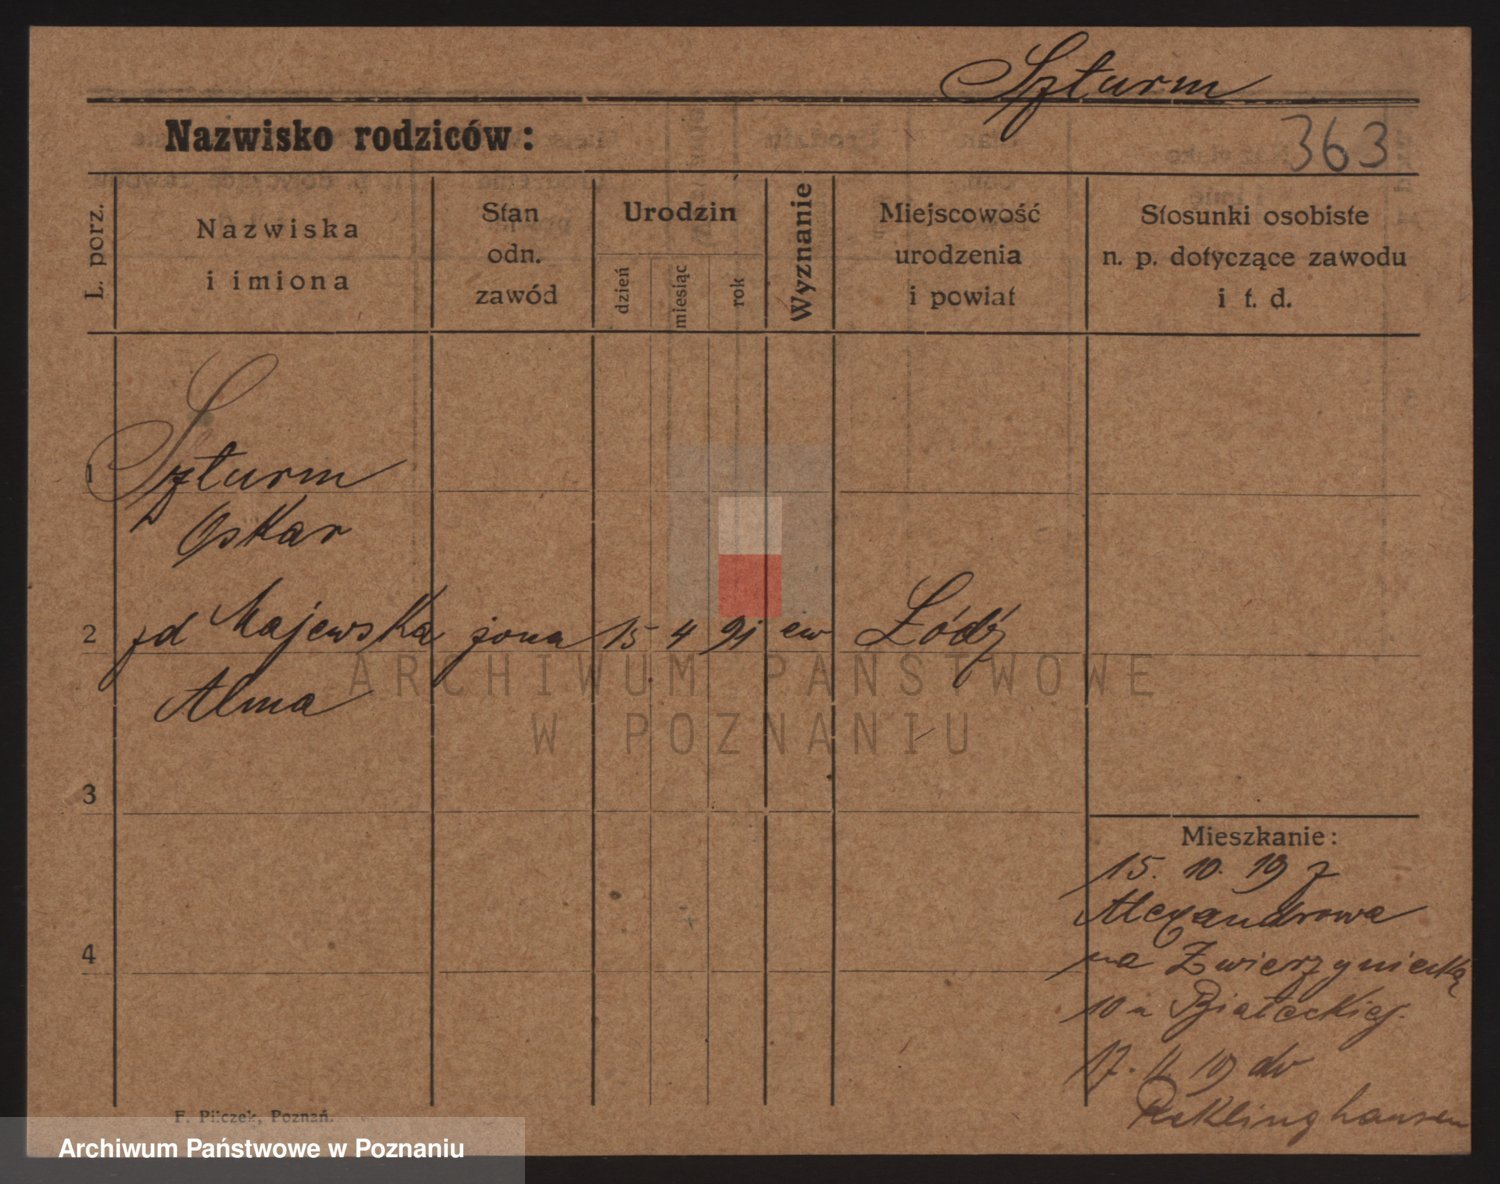 Szturm
Nazwisko rodziców:
363
L. porz.
Nazwiska
i imiona
Stan
odn.
zawód
Urodzin
dzień
miesiąc
rok
Wyznanie
Miejscowość
urodzenia
i powiat
Stosunki osobiste
n. p. dotyczące zawodu
i t. d.
1 Szturm
Oskar
2 zd Majewska żona 15 4 91 ew Łódź
Alma
ARCHIWUM PAŃSTWOWE
W POZNANIU
3
Mieszkanie:
15. 10. 19 z
Alexandrowa
na Zwierzyniecką
4
10 u Białeckiej.
17. 11. 19 do
Reklinghausen
F. Pilczek, Poznań.
Archiwum Państwowe w Poznaniu